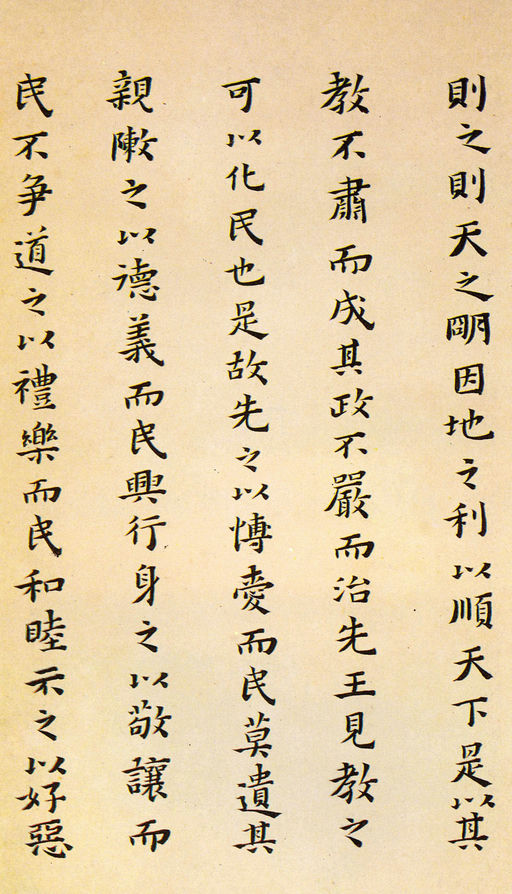 則之則天之朙因地之利以順天下是以其
教不肅而成其政不嚴而治先王見教之
可以化民也是故先之以愽愛而民莫遺其
親敶之以德義而民興行身之以敬讓而
民不争道之以禮樂而民和睦示之以好惡